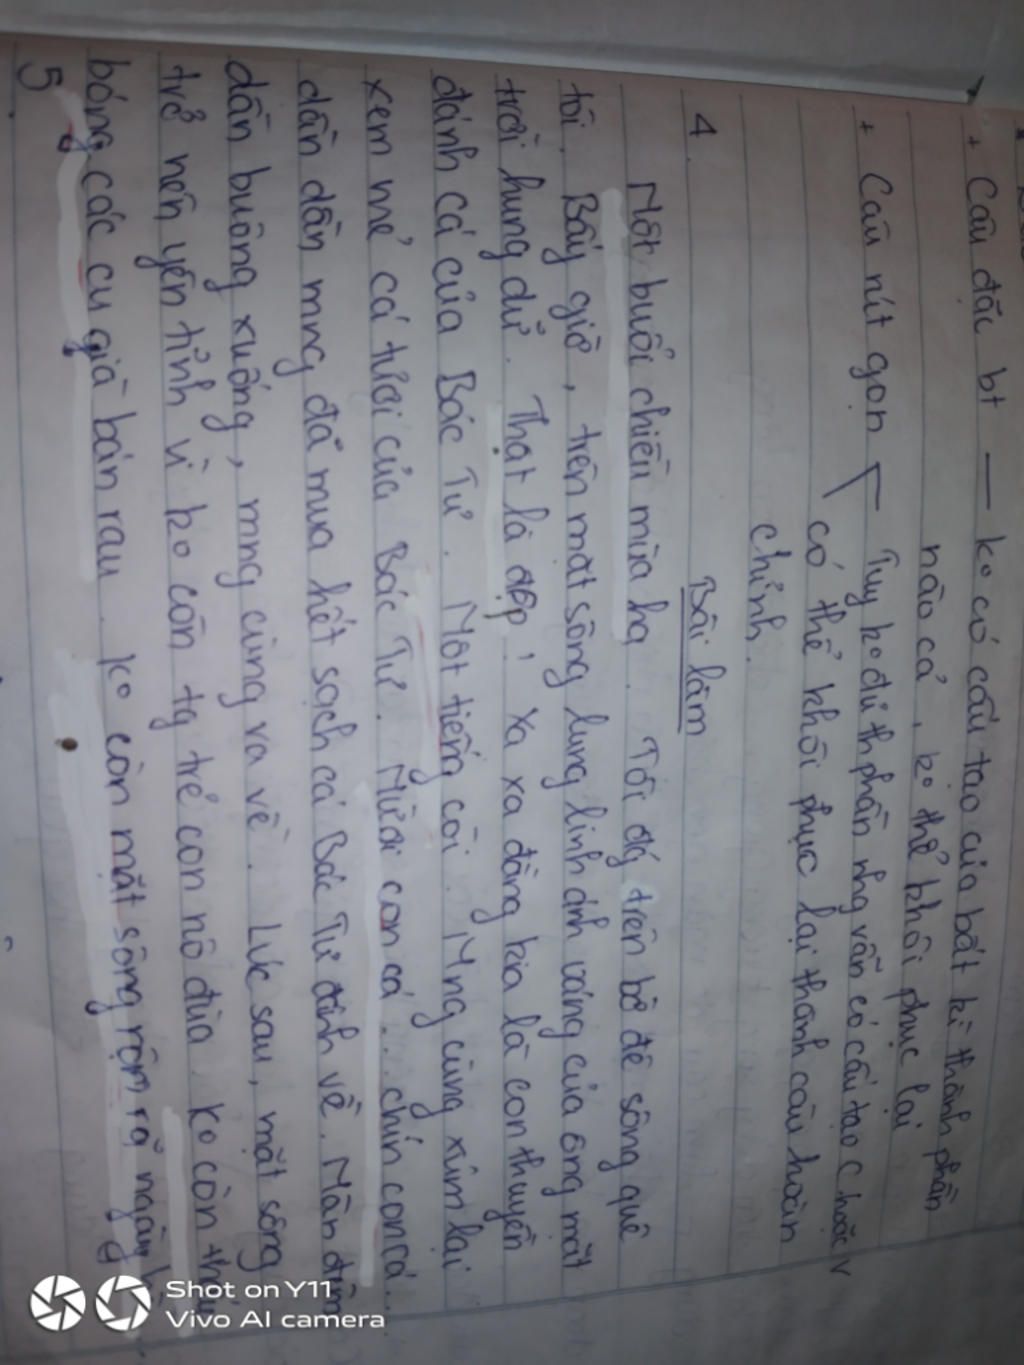 + Câu đăc bt — ko có cấu tạo của bất kì thành phần
nào cả, ko thể khôi phục lại
+ Câu rút gọn Tuy ko đủ th phần nhg vẫn có cấu tạo C hoặc V
có thể khôi phục lại thành câu hoàn
chỉnh.
4 Bài làm
Một buổi chiều mùa hạ. Tôi đg trên bờ đê sông quê
tôi. Bấy giờ, trên mặt sông lung linh ánh vàng của ông mặt
trời hung dữ. Thật là đẹp, xa xa đằng kia là con thuyền
đánh cá của Bác Tư. Một tiếng còi. Mng cùng xúm lại
xem mẻ cá tươi của Bác Tư. Mười con cá... chín con cá..
dần dần mng đã mua hết sạch cá Bác Tư đánh về. Màn đêm
dần buông xuống, mng cùng ra về. Lúc sau, mặt sông
trở nên yên tĩnh vì ko còn tg trẻ con nô đùa. Ko còn
bóng các cụ già bán rau. Ko còn mặt sông rộm rã
5
Shot on Y11
Vivo AI camera